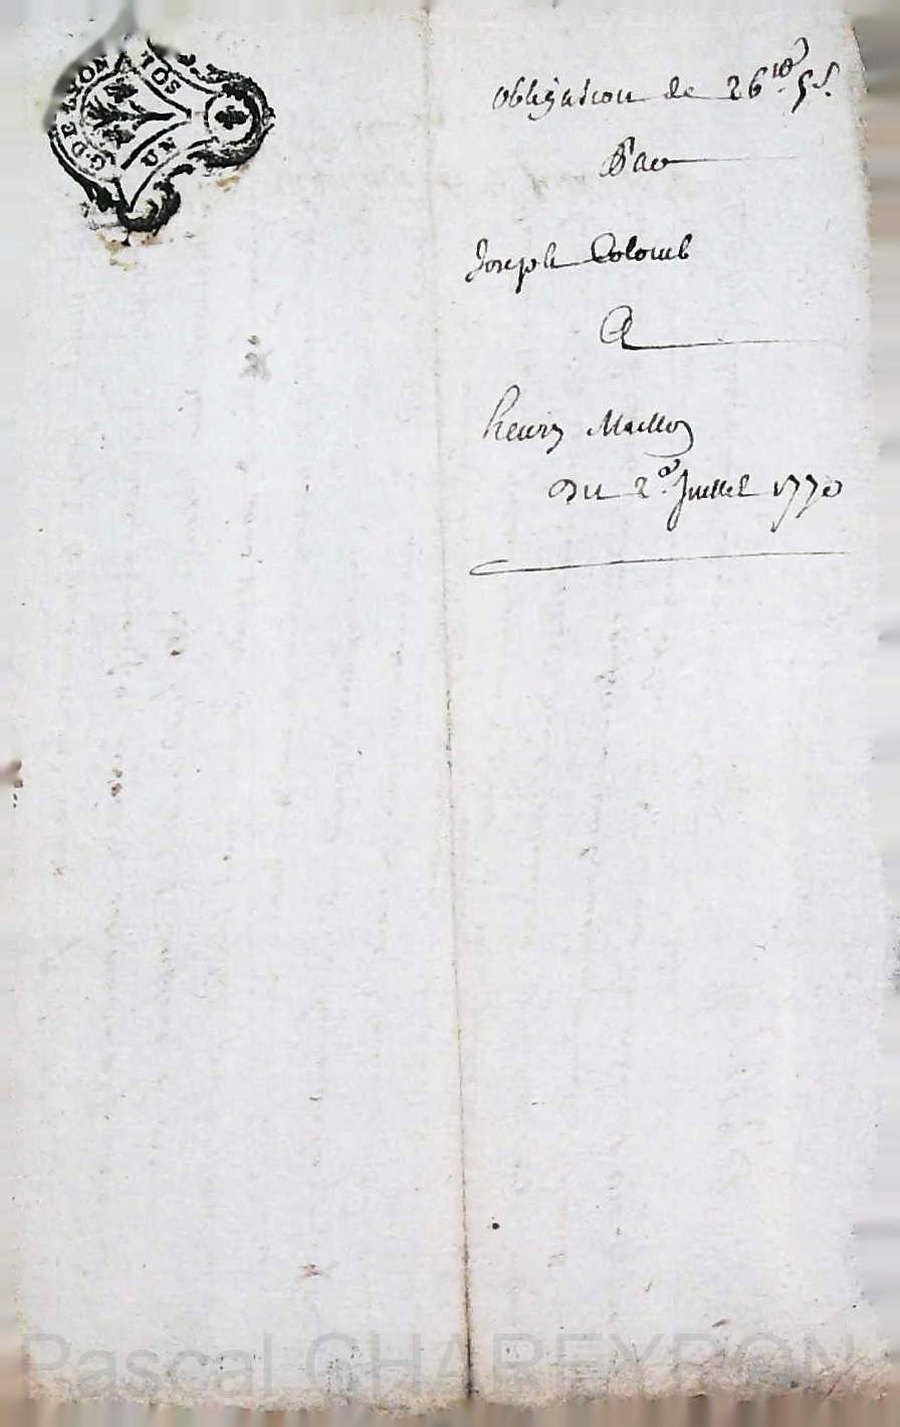 G. DE LYON
UN SOL
obligation de 26 lt 5 s.
Par
Joseph Colomb
A
henry
Du 2e. Juillet 1770
Pascal CHAREYRON